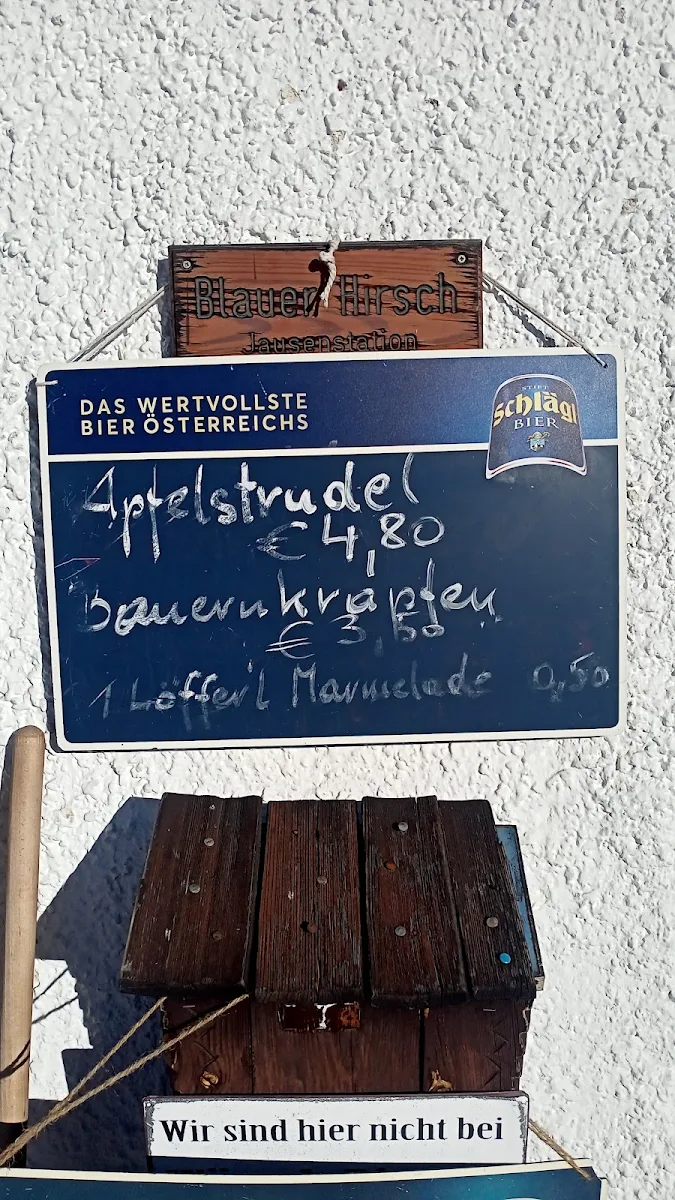 Blauer Hirsch
Jausenstation
DAS WERTVOLLSTE
BIER ÖSTERREICHS
STIFT
Schlägl
BIER
Apfelstrudel
€ 4,80
Bauernkrapfen
€ 3,50
1 Löffer'l Marmelade 0,50
Wir sind hier nicht bei